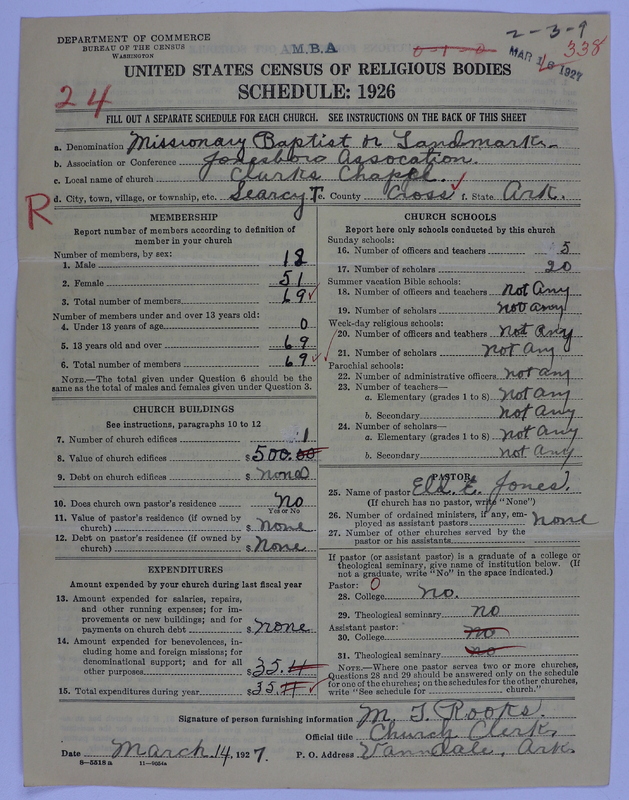 DEPARTMENT OF COMMERCE
BUREAU OF THE CENSUS
WASHINGTON
A.M.B.A
0-1-0
2-3-9
MAR 18 1927
338
UNITED STATES CENSUS OF RELIGIOUS BODIES
SCHEDULE: 1926
24
FILL OUT A SEPARATE SCHEDULE FOR EACH CHURCH. SEE INSTRUCTIONS ON THE BACK OF THIS SHEET
a. Denomination Missionary Baptist or Landmark
b. Association or Conference Jonesboro Assocation.
c. Local name of church Clarks Chapel.
d. City, town, village, or township, etc. Searcy T e. County Cross f. State Ark.
R
MEMBERSHIP
Report number of members according to definition of
member in your church
Number of members, by sex:
1. Male 18
2. Female 51
3. Total number of members 69
Number of members under and over 13 years old:
4. Under 13 years of age 0
5. 13 years old and over 69
6. Total number of members 69
NOTE.—The total given under Question 6 should be
the same as the total of males and females given under Question 3.
CHURCH BUILDINGS
See instructions, paragraphs 10 to 12
7. Number of church edifices 1
8. Value of church edifices $500.00
9. Debt on church edifices $none
10. Does church own pastor's residence No
Yes or No
11. Value of pastor's residence (if owned by
church) $None
12. Debt on pastor's residence (if owned by
church) $None
EXPENDITURES
Amount expended by your church during last fiscal year
13. Amount expended for salaries, repairs,
and other running expenses; for im-
provements or new buildings; and for
payments on church debt $None
14. Amount expended for benevolences, in-
cluding home and foreign missions; for
denominational support; and for all
other purposes $35.
15. Total expenditures during year $35.
CHURCH SCHOOLS
Report here only schools conducted by this church
Sunday schools:
16. Number of officers and teachers 5
17. Number of scholars 20
Summer vacation Bible schools:
18. Number of officers and teachers not Any
19. Number of scholars not any
Week-day religious schools:
20. Number of officers and teachers not Any
21. Number of scholars not Any
Parochial schools:
22. Number of administrative officers not Any
23. Number of teachers—
a. Elementary (grades 1 to 8) not Any
b. Secondary not Any
24. Number of scholars—
a. Elementary (grades 1 to 8) not Any
b. Secondary not Any
PASTOR
25. Name of pastor Eld. E. Jones.
(If church has no pastor, write "None")
26. Number of ordained ministers, if any, em-
ployed as assistant pastors none
27. Number of other churches served by the
pastor or his assistants
If pastor (or assistant pastor) is a graduate of a college or
theological seminary, give name of institution below. (If
not a graduate, write "No" in the space indicated.)
Pastor: 0
28. College No.
29. Theological seminary no
Assistant pastor:
30. College no
31. Theological seminary no
NOTE.—Where one pastor serves two or more churches,
Questions 28 and 29 should be answered only on the schedule
for one of the churches; on the schedules for the other churches,
write "See schedule for church."
Signature of person furnishing information M. T. Rooks.
Official title Church Clerk,
Date March. 14, 1927. P. O. Address Vanndale, Ark
8—5518a 11—9054a